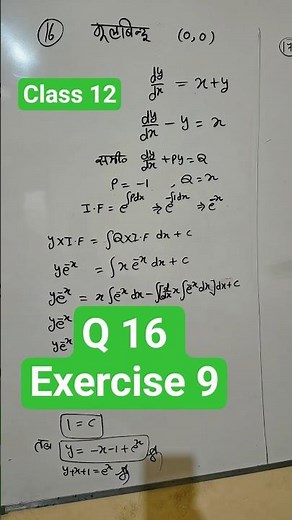 16 मूलबिन्दु (0,0)
Class 12
dy/dx = x+y
dy/dx - y = x
समी० dy/dx + Py = Q
P = -1 , Q = x
I.F = e^∫Pdx ⇒ e^∫-1dx ⇒ e^-x
y×I.F = ∫Q×I.F dx + c
ye^-x = ∫x e^-x dx + c
ye^-x = x∫e^-x dx - ∫[d/dx x ∫e^-x dx]dx + c
ye^-x
ye^-x
Q 16
Exercise 9
1 = c
तब y = -x-1+e^x
y+x+1 = e^x